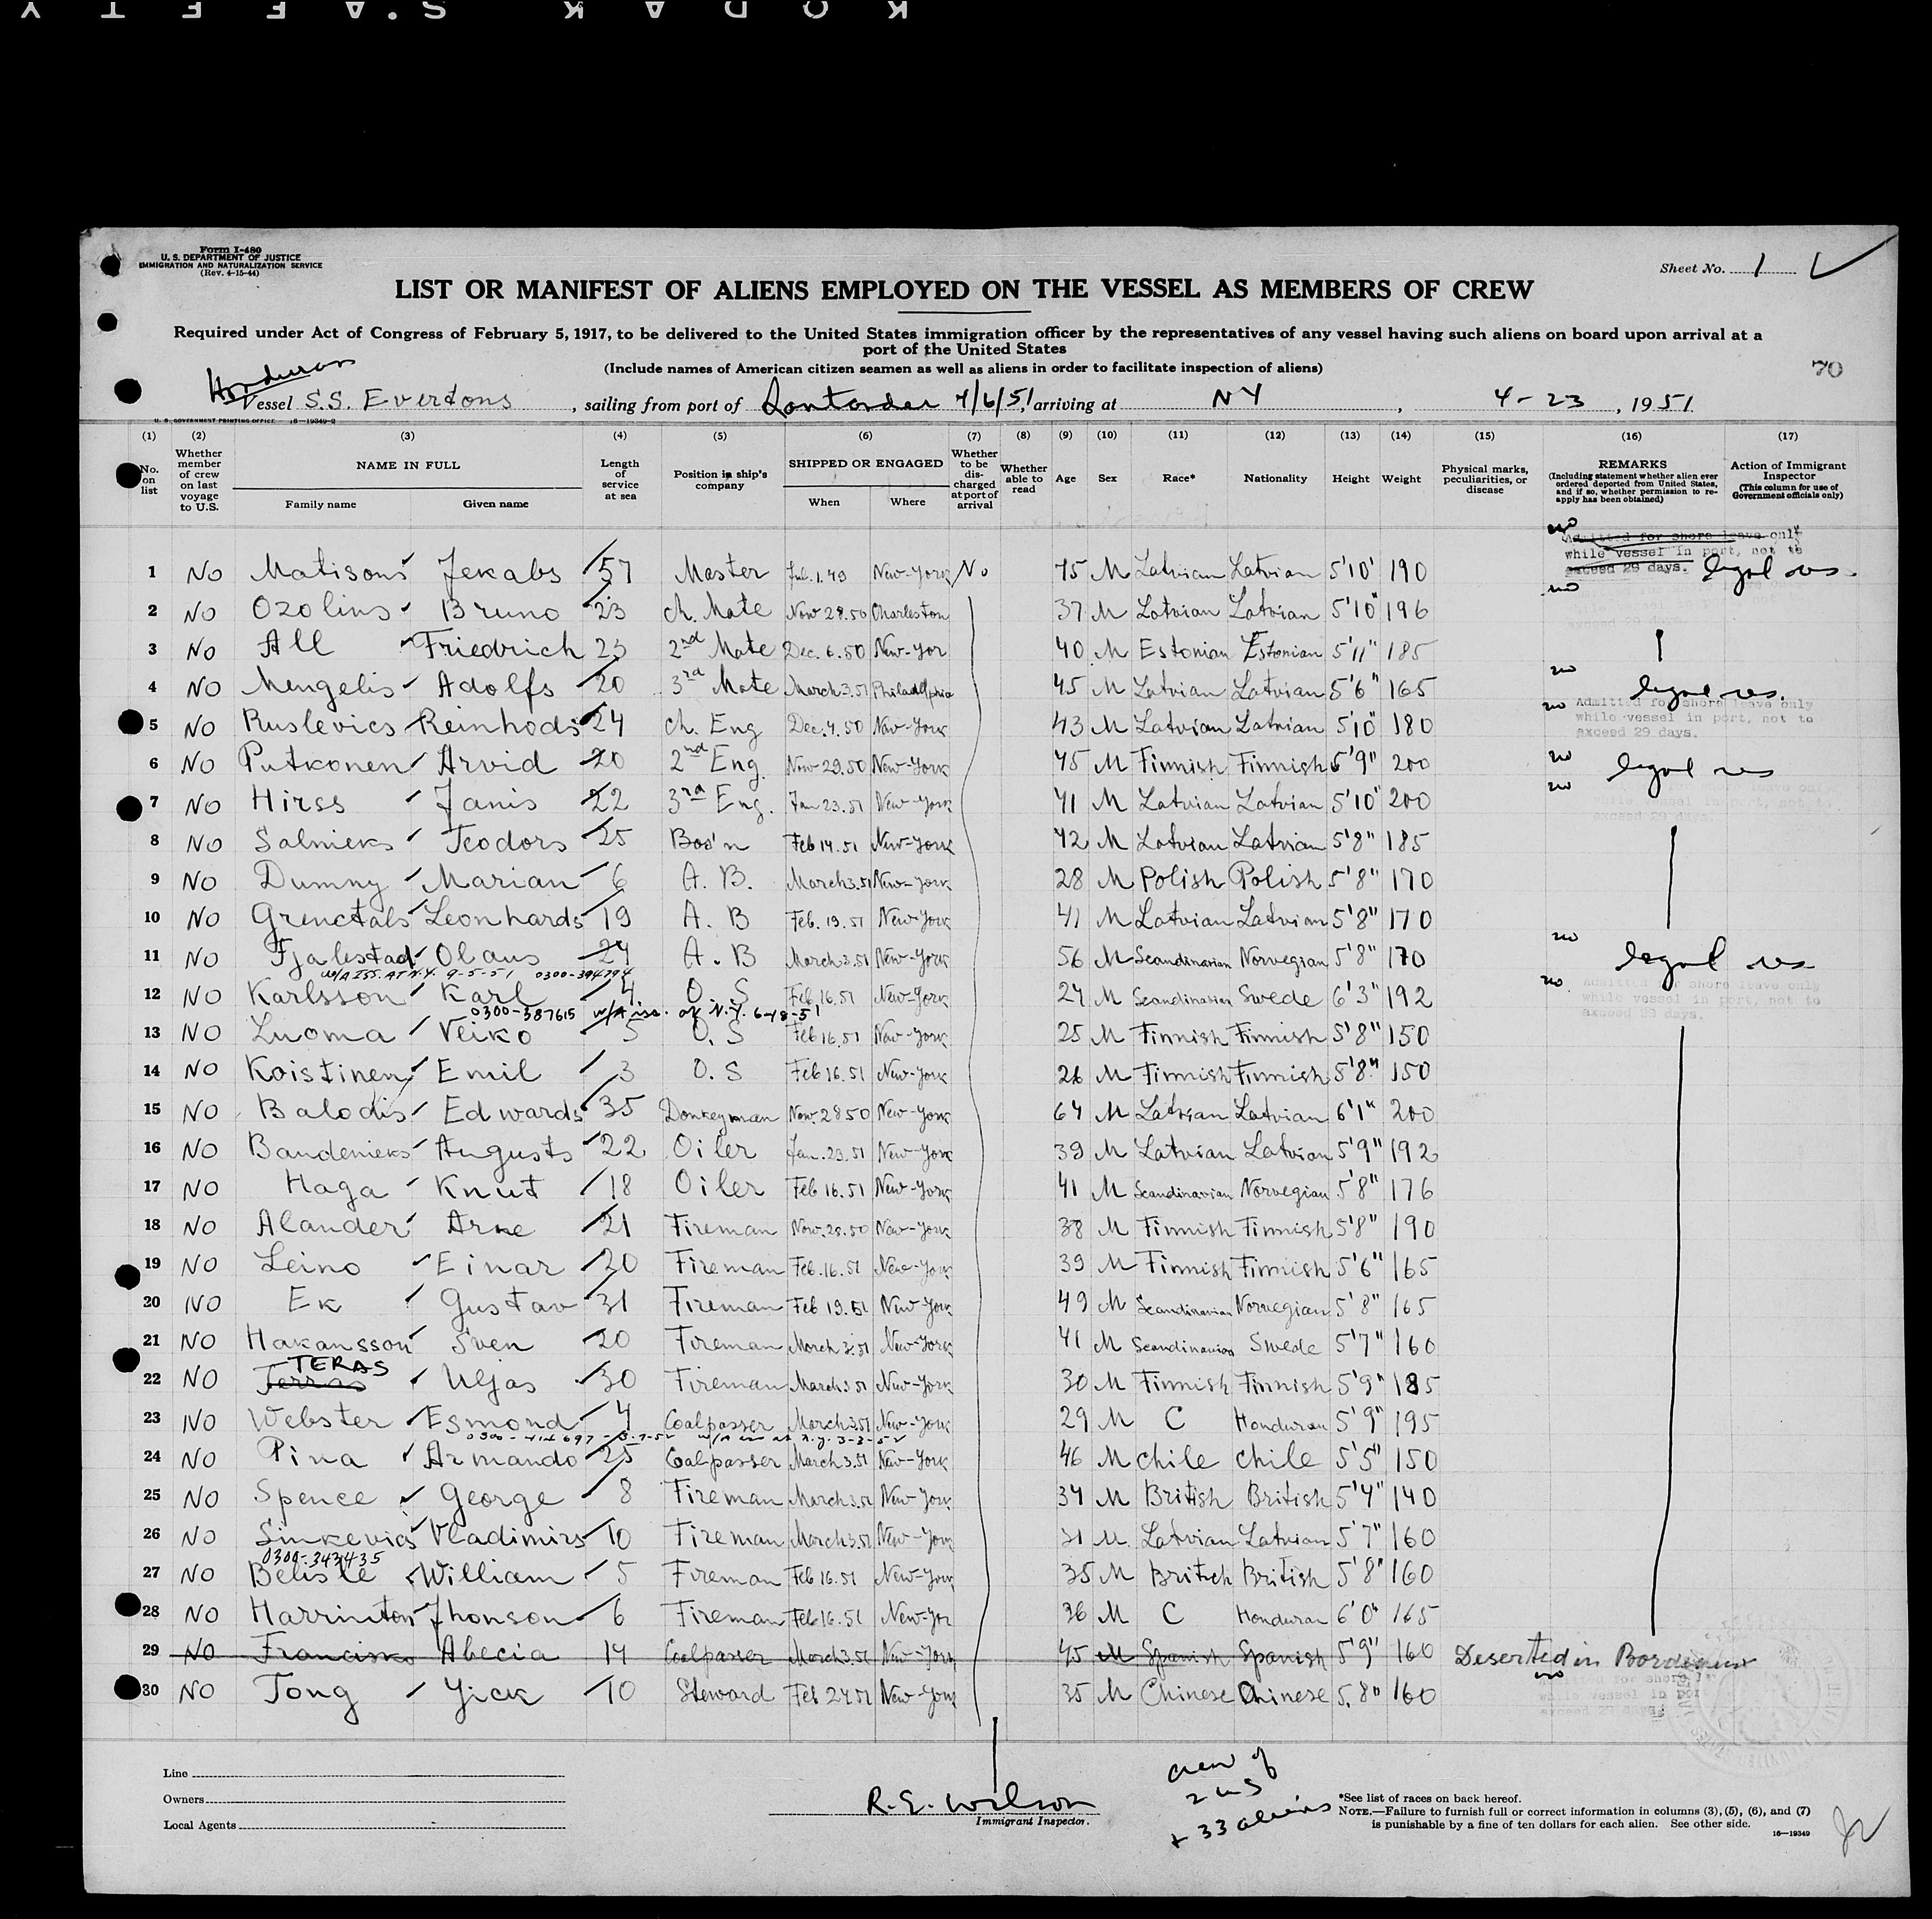 KODAK SAFETY
Form I-480
U. S. DEPARTMENT OF JUSTICE
IMMIGRATION AND NATURALIZATION SERVICE
(Rev. 4-15-44)
Sheet No. 1
LIST OR MANIFEST OF ALIENS EMPLOYED ON THE VESSEL AS MEMBERS OF CREW
Required under Act of Congress of February 5, 1917, to be delivered to the United States immigration officer by the representatives of any vessel having such aliens on board upon arrival at a
port of the United States
(Include names of American citizen seamen as well as aliens in order to facilitate inspection of aliens)
70
Honduran
Vessel S.S. Everdons, sailing from port of 4/6/51, arriving at NY, 4-23, 1951
U. S. GOVERNMENT PRINTING OFFICE 16—19349-2
(1) (2) (3) (4) (5) (6) (7) (8) (9) (10) (11) (12) (13) (14) (15) (16) (17)
No. on list Whether member of crew on last voyage to U.S. NAME IN FULL Family name Given name Length of service at sea Position in ship's company SHIPPED OR ENGAGED When Where Whether to be discharged at port of arrival Whether able to read Age Sex Race* Nationality Height Weight Physical marks, peculiarities, or disease REMARKS (Including statement whether alien ever ordered deported from United States, and if so, whether permission to reapply has been obtained) Action of Immigrant Inspector (This column for use of Government officials only)
no Admitted for shore leave only
while vessel in port, not to
exceed 29 days.
1 No Matisons Jekabs 57 Master Feb. 1. 49 New-York No 75 M Latvian Latvian 5'10" 190 legal res.
2 No Ozolins Bruno 23 ch. Mate Nov 28.50 Charleston 37 M Latvian Latvian 5'10" 196 no
3 No All Friedrich 23 2nd Mate Dec. 6.50 New-Yor 40 M Estonian Estonian 5'11" 185
4 No Mengelis Adolfs 20 3rd Mate March 3.51 Philadelphia 45 M Latvian Latvian 5'6" 165 no legal res.
5 No Ruslevics Reinhods 24 ch. Eng Dec. 4.50 New-York 43 M Latvian Latvian 5'10" 180 no Admitted for shore leave only
while vessel in port, not to
exceed 29 days.
6 No Putkonen Arvid 20 2nd Eng. Nov 29.50 New-York 45 M Finnish Finnish 5'9" 200 no legal res
7 No Hirss Janis 22 3rd Eng. Jan 23.51 New-York 41 M Latvian Latvian 5'10" 200 no
8 No Salnieks Teodors 25 Bos'n Feb 14.51 New-York 42 M Latvian Latvian 5'8" 185
9 No Dumny Marian 6 A. B. March 3.51 New-York 28 M Polish Polish 5'8" 170
10 No Grenctals Leonhards 19 A. B Feb. 19.51 New-York 41 M Latvian Latvian 5'8" 170
11 No Fjalestad Olaus 24 A. B March 3.51 New-York 56 M Scandinavian Norwegian 5'8" 170 no legal res
W/A ISS. AT N.Y. 9-5-51 0300-394794
12 No Karlsson Karl 4 O. S Feb 16.51 New-York 24 M Scandinavian Swede 6'3" 192 no Admitted for shore leave only
while vessel in port, not to
exceed 29 days.
0300-387615 W/A iss. at N.Y. 6-18-51
13 No Luoma Veiko 5 O. S Feb 16.51 New-York 25 M Finnish Finnish 5'8" 150
14 No Koistinen Emil 3 O. S Feb 16.51 New-York 26 M Finnish Finnish 5'8" 150
15 No Balodis Edwards 35 Donkeyman Nov. 28 50 New-York 64 M Latvian Latvian 6'1" 200
16 No Bandenieks Augusts 22 Oiler Jan. 23.51 New-York 39 M Latvian Latvian 5'9" 192
17 No Haga Knut 18 Oiler Feb 16.51 New-York 41 M Scandinavian Norvegian 5'8" 176
18 No Alander Arne 21 Fireman Nov. 28.50 New-York 38 M Finnish Finnish 5'8" 190
19 No Leino Einar 20 Fireman Feb. 16.51 New-York 39 M Finnish Finnish 5'6" 165
20 No Ek Gustav 31 Fireman Feb 19.51 New-York 49 M Scandinavian Norvegian 5'8" 165
21 No Hakansson Sven 20 Fireman March 3.51 New-York 41 M Scandinavian Swede 5'7" 160
TERAS
22 No Terras Uljas 30 Fireman March 3 51 New-York 30 M Finnish Finnish 5'9" 185
23 No Webster Esmond 4 Coalpasser March 3.51 New-York 29 M C Honduran 5'9" 195
24 No Pina Armando 25 Coalpasser March 3.51 New-York 46 M chile chile 5'5" 150
25 No Spence George 8 Fireman March 3.51 New-York 34 M British British 5'4" 140
26 No Sinkevics Vladimirs 10 Fireman March 3.51 New-York 31 M Latvian Latvian 5'7" 160
0300-343435
27 No Belisle William 5 Fireman Feb 16.51 New-York 35 M British British 5'8" 160
28 No Harrinton Jhonson 6 Fireman Feb 16.51 New-Yor 36 M C Honduran 6'0" 165
29 No Francisko Abecia 14 Coalpasser March 3.51 New-York 45 M Spanish Spanish 5'9" 160 Deserted in Bordeaux
30 No Tong Yick 10 Steward Feb 24 51 New-York 35 M Chinese Chinese 5.8" 160 no
Line
Owners
Local Agents
R. E. Wilson
Immigrant Inspector.
crew of
2 US
+ 33 aliens
*See list of races on back hereof.
NOTE.—Failure to furnish full or correct information in columns (3), (5), (6), and (7)
is punishable by a fine of ten dollars for each alien. See other side.
16—19349